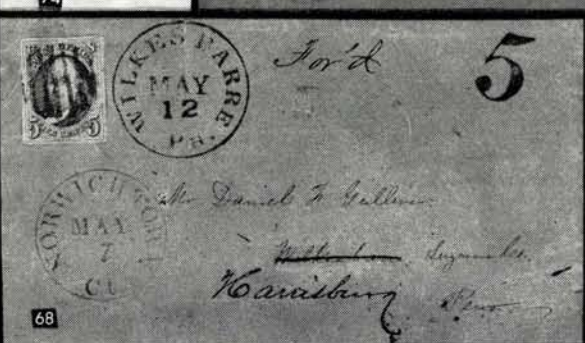 For'd
5
WILKES BARRE
MAY
12
Pa.
5 5
NORWICH TOWN
MAY
7
Ct.
Mr Daniel W Gulliver
Luzerne Co.
Harrisburg
Penn
68